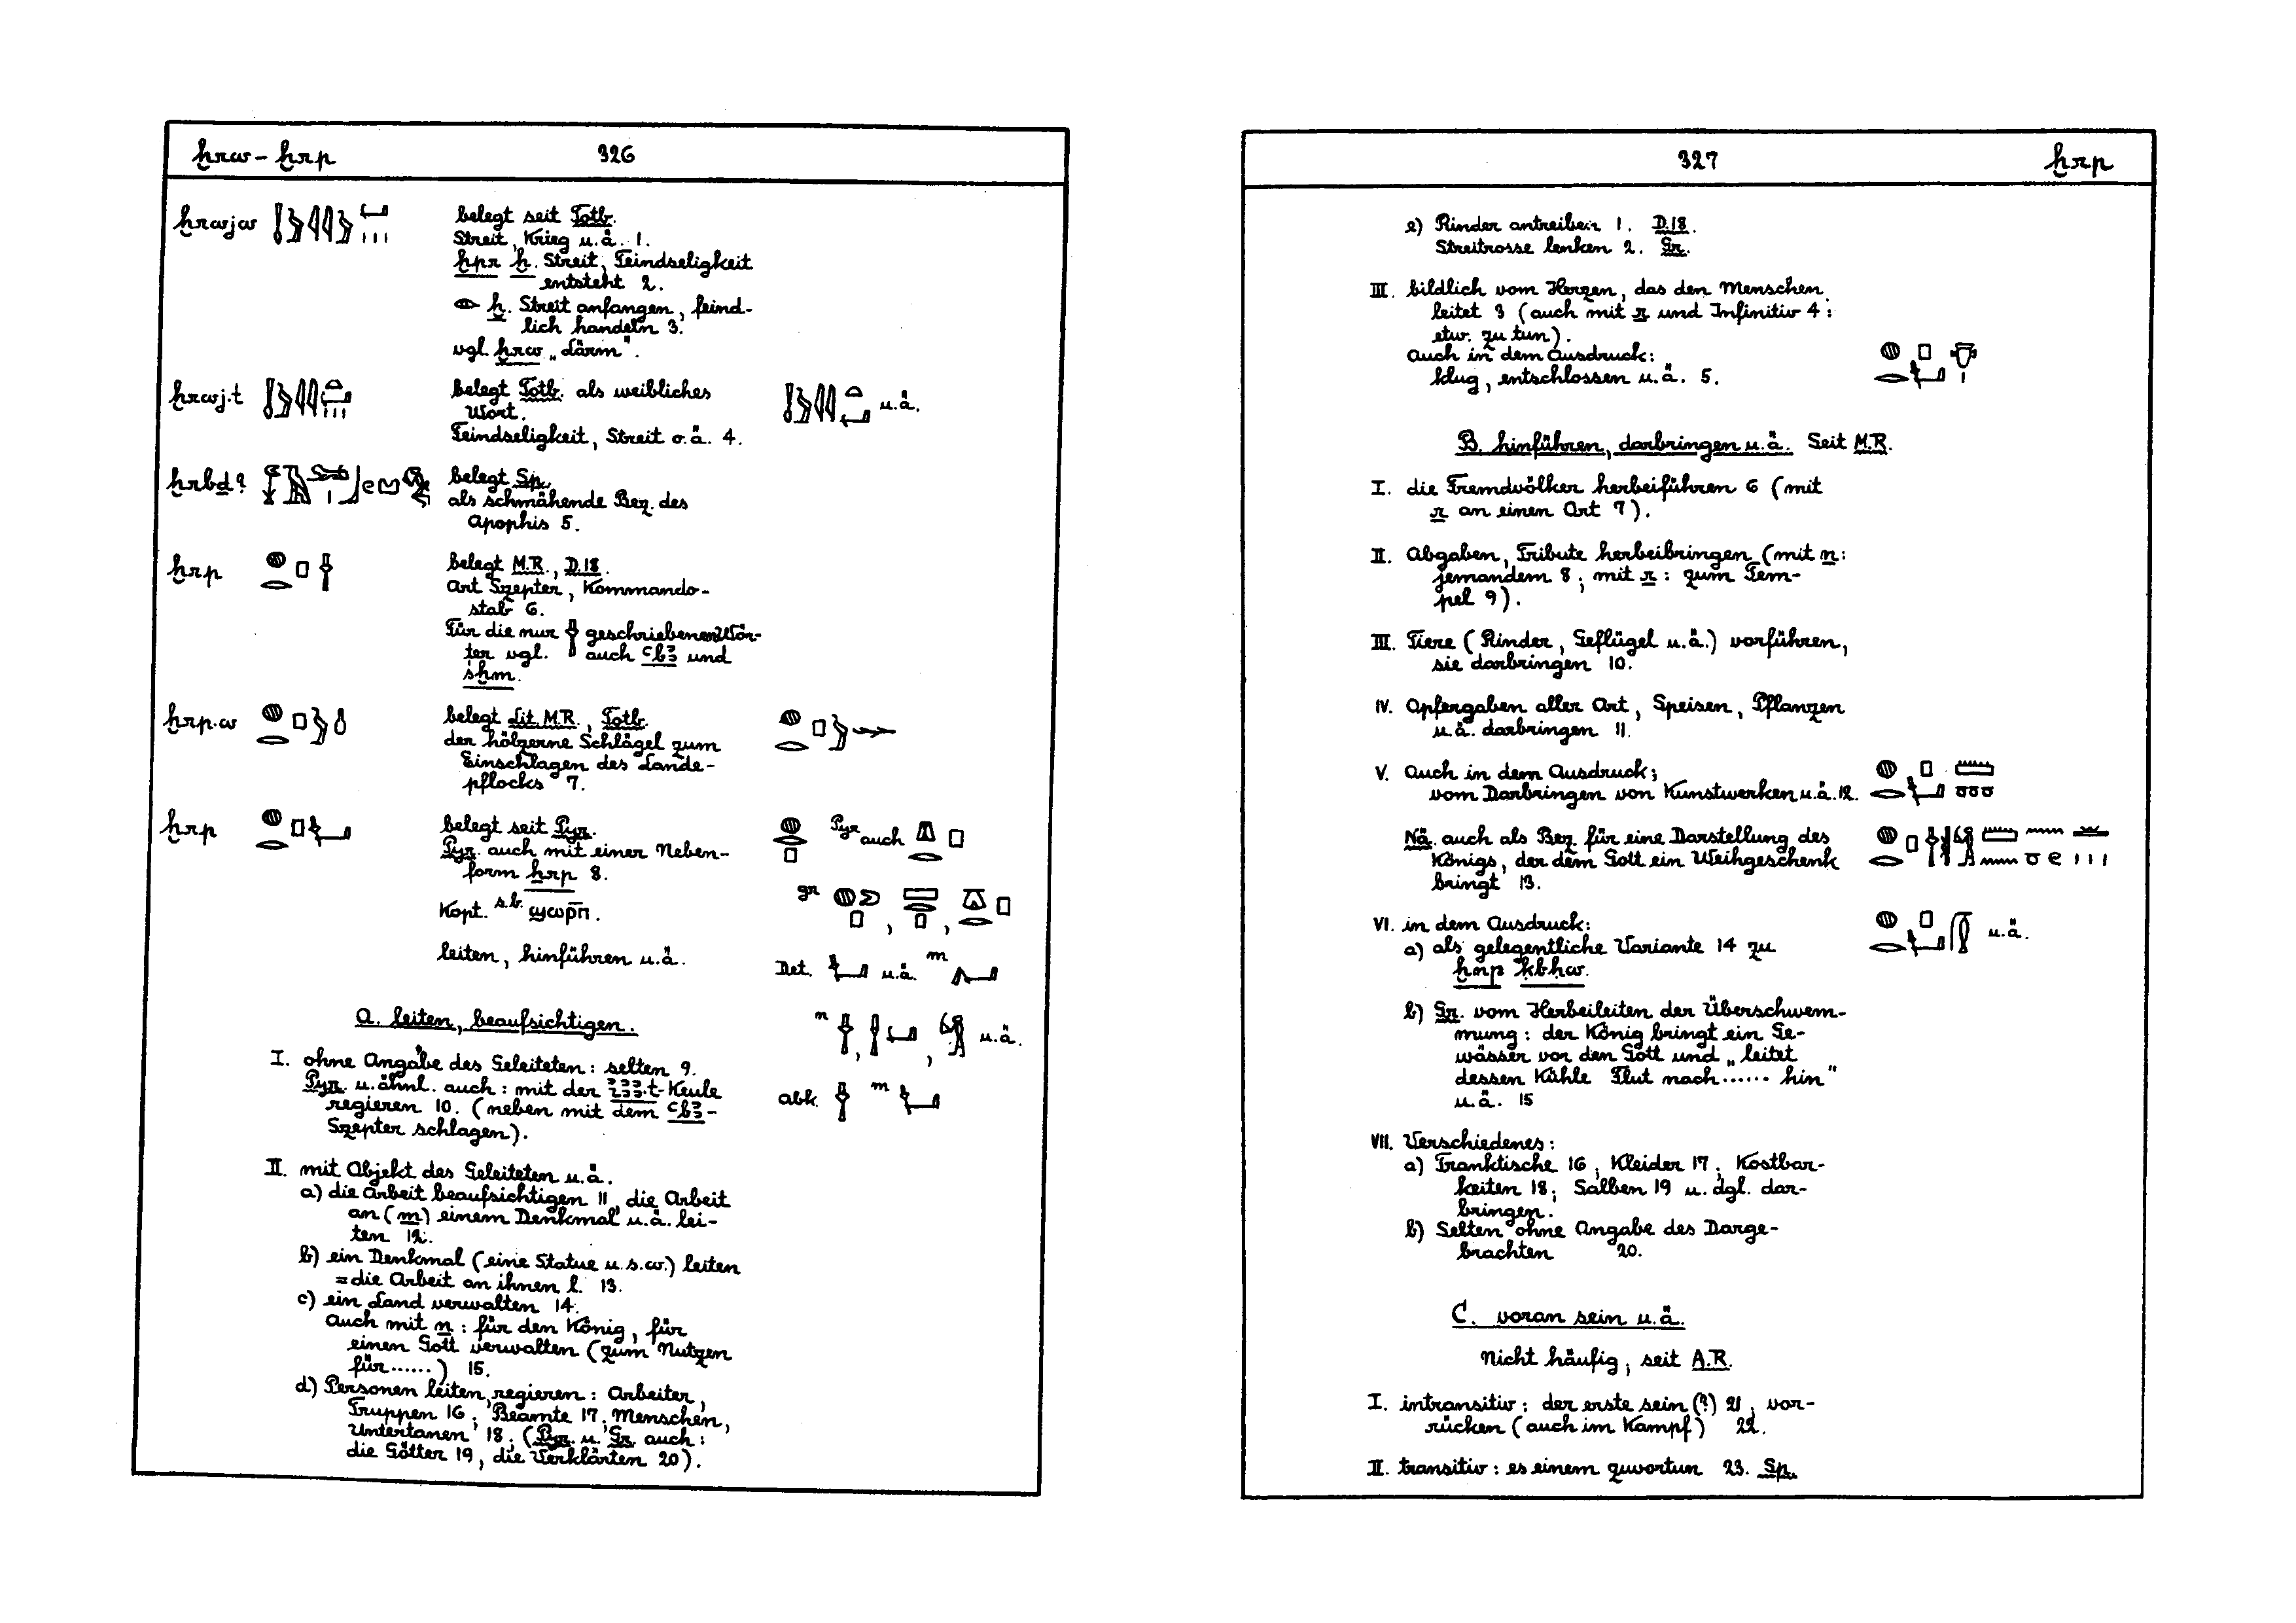 ḫrw – ḫrp 326
ḫrwjw
belegt seit Totb.
Streit, Krieg u.ä. 1.
ḫpr ḫ. Streit, Feindseligkeit
entsteht 2.
ḫ. Streit anfangen, feind-
lich handeln 3.
vgl. ḫrw „Lärm".
ḫrwj.t
belegt Totb. als weibliches
Wort.
u.ä.
Feindseligkeit, Streit o.ä. 4.
ḫrbd?
belegt Sp.
als schmähende Bez. des
Apophis 5.
ḫrp
belegt M.R., D.18.
Art Szepter, Kommando-
stab 6.
Für die nur geschriebenen Wör-
ter vgl. auch ꜥbꜣ und
sḫm.
ḫrp.w
belegt Lit. M.R., Totb.
der hölzerne Schlägel zum
Einschlagen des Lande-
pflocks 7.
ḫrp
belegt seit Pyr.
Pyr. auch mit einer Neben-
form ẖrp 8.
Pyr auch
Kopt. s.b. ϣωρⲡ̄.
gr
leiten, hinführen u.ä.
Det. u.ä. m
A. leiten, beaufsichtigen.
n , , u.ä.
I. ohne Angabe des Geleiteten: selten 9.
Pyr. u. ähnl. auch: mit der .t-Keule
regieren 10. (neben mit dem ꜥbꜣ-
Szepter schlagen).
abk. m
II. mit Objekt des Geleiteten u.ä.
a) die Arbeit beaufsichtigen 11, die Arbeit
an (m) einem Denkmal u.ä. lei-
ten 12.
b) ein Denkmal (eine Statue u.s.w.) leiten
= die Arbeit an ihnen l. 13.
c) ein Land verwalten 14.
Auch mit n: für den König, für
einen Gott verwalten (zum Nutzen
für......) 15.
d) Personen leiten, regieren: Arbeiter,
Truppen 16; Beamte 17; Menschen,
Untertanen 18; (Pyr. u. Gr. auch:
die Götter 19, die Verklärten 20).
327 ḫrp
e) Rinder antreiben 1. D.18.
Streitrosse lenken 2. Gr.
III. bildlich vom Herzen, das den Menschen
leitet 3 (auch mit r und Infinitiv 4:
etw. zu tun).
Auch in dem Ausdruck:
klug, entschlossen u.ä. 5.
B. hinführen, darbringen u.ä. Seit M.R.
I. die Fremdvölker herbeiführen 6 (mit
r an einen Ort 7).
II. Abgaben, Tribute herbeibringen (mit n:
jemandem 8; mit r: zum Tem-
pel 9).
III. Tiere (Rinder, Geflügel u.ä.) vorführen,
sie darbringen 10.
IV. Opfergaben aller Art, Speisen, Pflanzen
u.ä. darbringen 11.
V. Auch in dem Ausdruck;
vom Darbringen von Kunstwerken u.ä. 12.
Nä. auch als Bez. für eine Darstellung des
Königs, der dem Gott ein Weihgeschenk
bringt 13.
VI. in dem Ausdruck:
u.ä.
a) als gelegentliche Variante 14 zu
ḫnp ḳbḥw.
b) Gr. vom Herbeileiten der Überschwem-
mung: der König bringt ein Ge-
wässer vor den Gott und „leitet
dessen Kühle Flut nach ...... hin"
u.ä. 15
VII. Verschiedenes:
a) Tranktische 16; Kleider 17; Kostbar-
keiten 18; Salben 19 u. dgl. dar-
bringen.
b) Selten ohne Angabe des Darge-
brachten 20.
C. voran sein u.ä.
Nicht häufig; seit A.R.
I. intransitiv: der erste sein (?) 21; vor-
rücken (auch im Kampf) 22.
II. transitiv: es einem zuvortun 23. Sp.